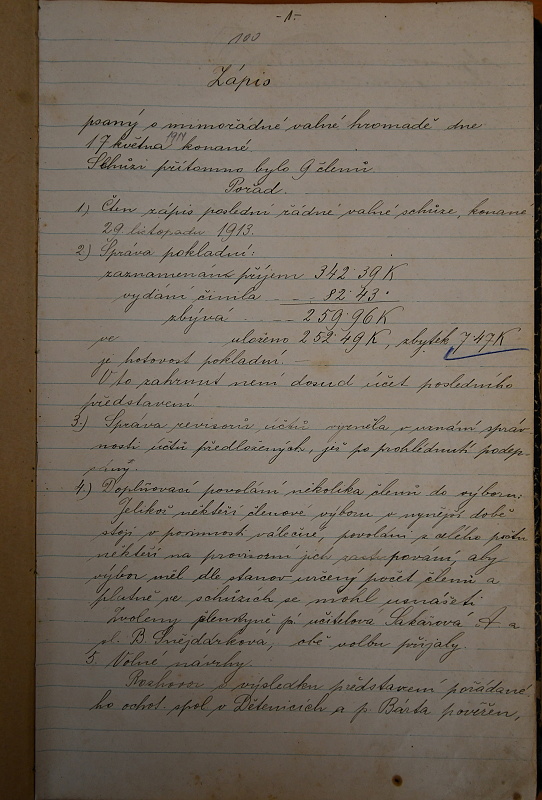 -1-
100
Zápis
psaný o mimořádné valné hromadě dne
17 května 1914 konané
Schůzi přítomno bylo 9 členů.
Pořad.
1) Čten zápis poslední řádné valné schůze, konané
29 listopadu 1913.
2) Správa pokladní:
zaznamenán příjem 342·39 K
vydání činila - - 82·43·
zbývá - - 259·96 K
ve uloženo 252 49 K, zbytek 7·47 K
je hotovost pokladní.
V to zahrnut není dosud účet posledního
představení
3.) Správa revisorů účtů vyzněla v uznání správ-
nosti účtů předložených, jež po prohlédnutí podep-
sány.
4.) Doplňovací povolání několika členů do výboru:
Jelikož někteří členové výboru v nynější době
stojí v povinnosti válečné, povoláni z celého počtu
někteří na provisorní jich zastupování, aby
výbor měl dle stanov určený počet členů a
platně ve schůzích se mohl usnášeti
Zvoleny členkyně p. učitelova Sakařová A a
sl. B. Šnejdárkova, obě volbu přijaly.
5. Volné návrhy.
Rozhovor o výsledku představení pořádané
ho ochot. spol v Dětenicích a p Bárta pověřen,